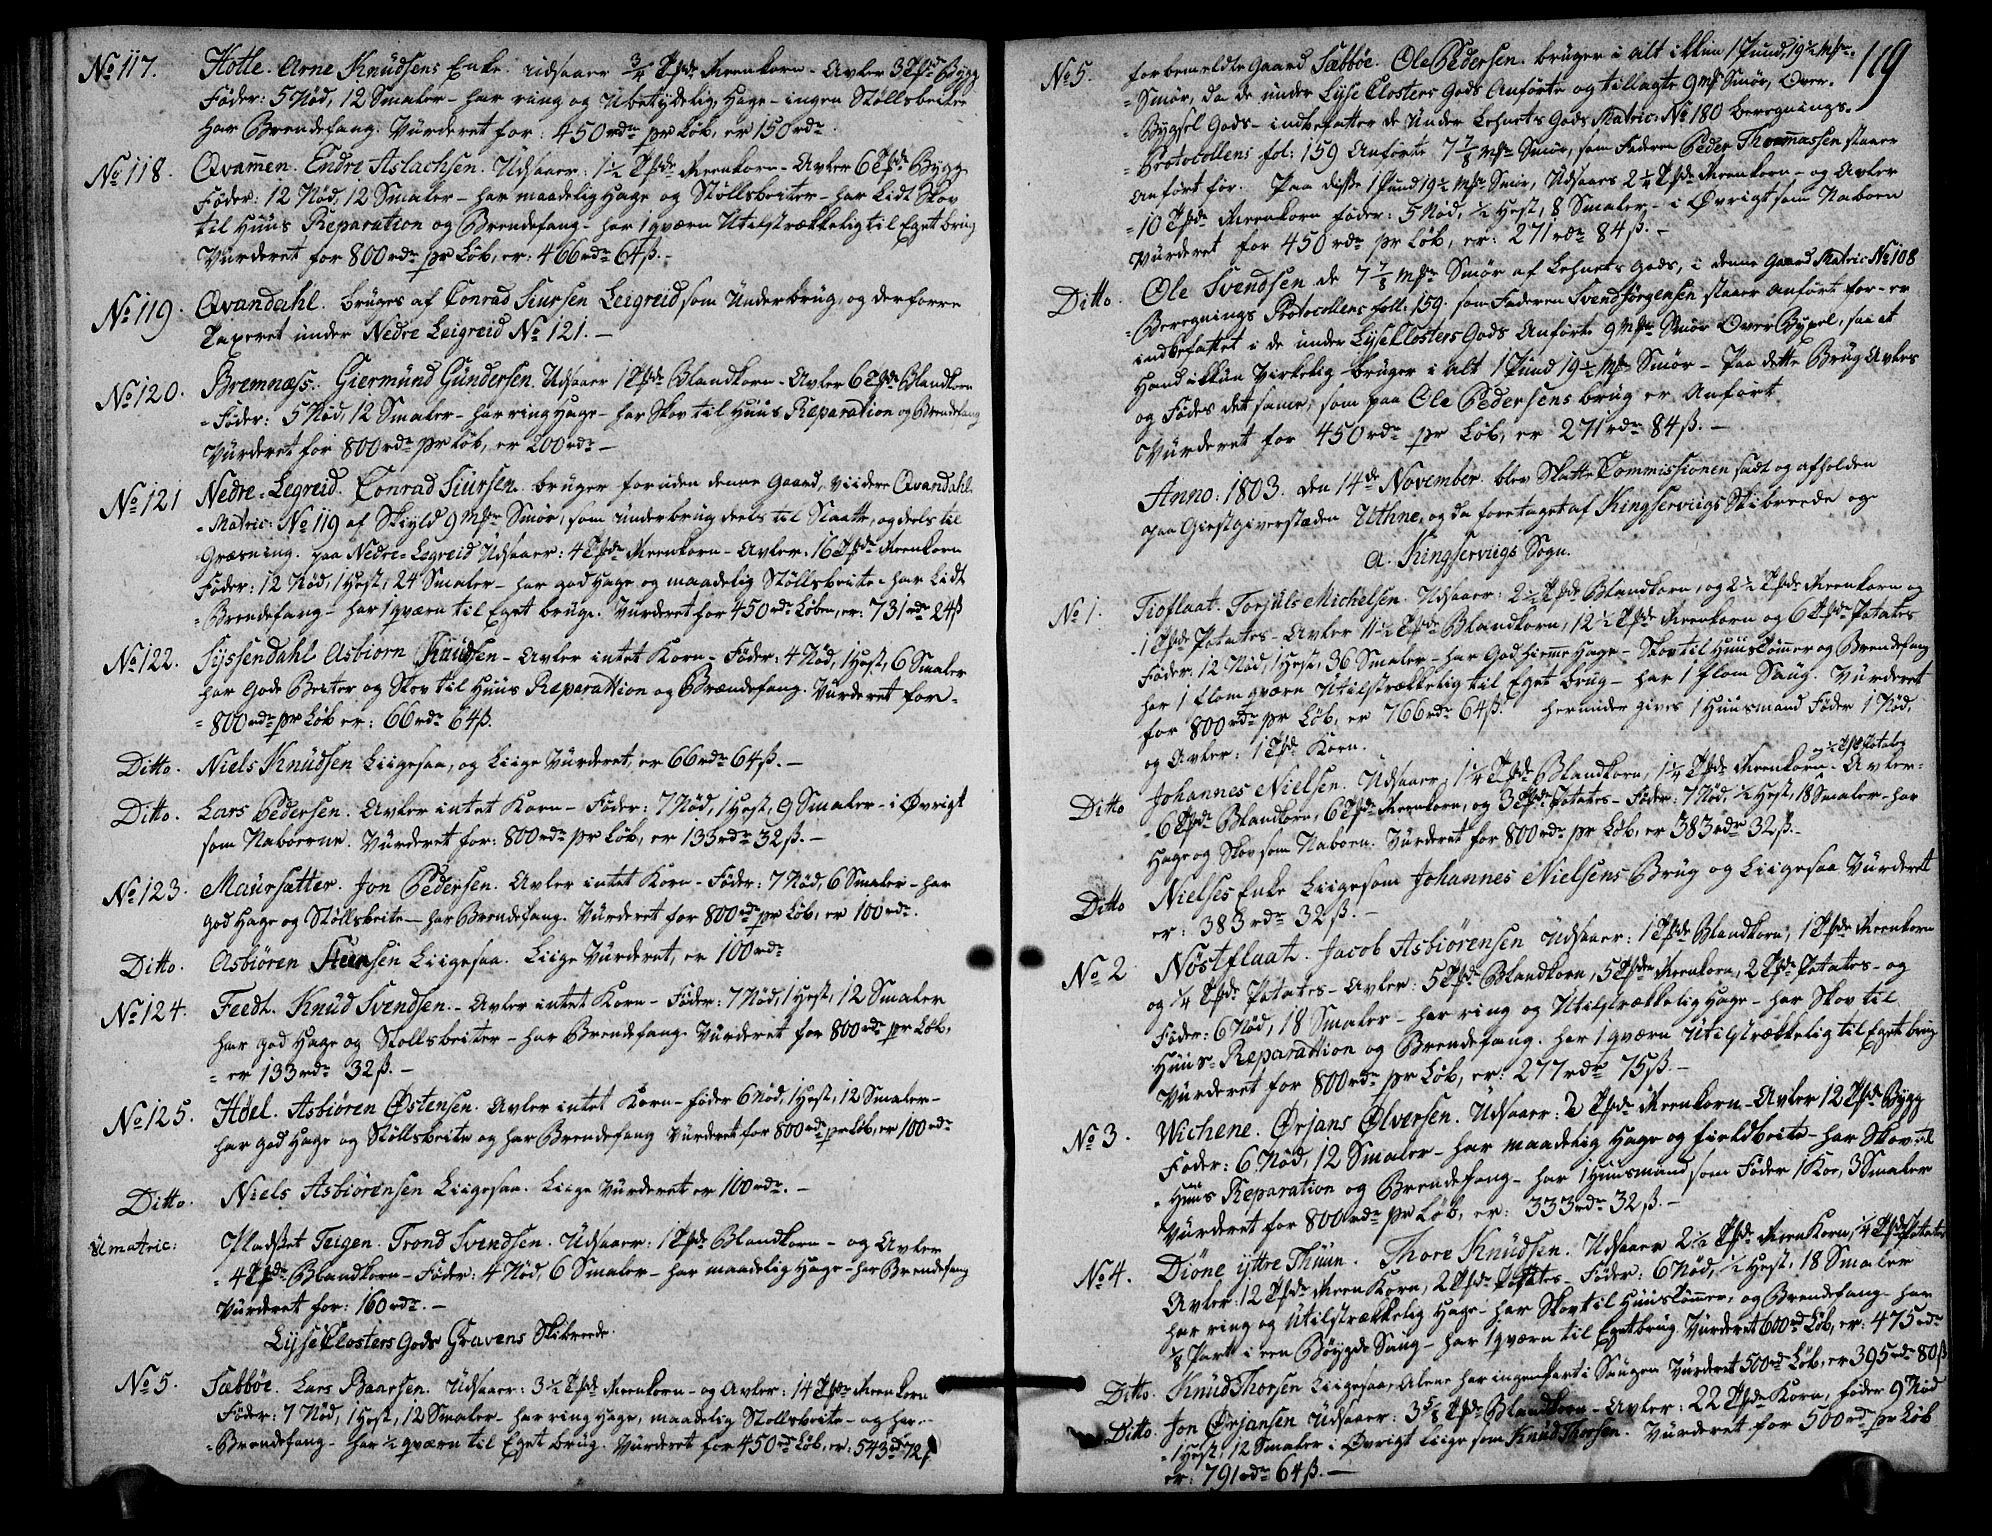 No 117. Hotle. Arne Knudsens Enke. udsaaer 3/4 Tpde Meenkorn - Avler 3 Tpde Bygg
Föder: 5 Nöd, 12 Smaler - har ring og Ubetydelig Hage - ingen Stöllsbeiter
har Brendefang. Vurderet for: 450 rdr pr Löb, er 150 rdr
No 118. Qvammen. Endre Aslachsen. Udsaaer: 1 1/2 Tpde Meenkorn - Avler 6 Tpde Bygg
Föder: 12 Nöd, 12 Smaler - har maadelig Hage og Stöllsbeiter - har Lidt Skov
til Huus Reparation og Brendefang - har 1 qværn Utilstrækkelig til Eget brug
Vurderet for 800 rdr pr Löb, er: 466 rdr 64 ß. -
No 119. Qvandahl. bruges af Conrad Siursen Leigreid, som Underbrug, og derforre
Taxeret under Nedre Leigreid No 121. -
No 120. Bremnæss. Giermund Gundersen. Udsaaer 1 Tpde Blandkorn - Avler 6 Tpde Blandkorn
= Föder: 5 Nöd, 12 Smaler - har ring Hage - har Skov til Huus Reparation og Brendefang
Vurderet for 800 rdr pr Löb, er 200 rdr -
No 121 Nedre=Legreid. Conrad Siursen. bruger foruden denne Gaard, Viidere Qvandahl
= Matric: No 119 af Skyld 9 Mpr Smör, som underbrug deels til Slaatte, og deels til
Græsning. paa Nedre=Legreid Udsaaer: 4 Tpde Meenkorn - Avler: 16 Tpde Meenkorn
Föder: 12 Nöd, 1 Hest, 24 Smaler - har god Hage og maadelig Stöllsbeite - har Lidt
= Brendefang - har 1 qværn til Eget bruge. Vurderet for 450 rdr Löben, er: 731 rdr 24 ß
No 122. Syssendahl Asbiorn Knudsen - Avler intet Korn - Föder: 4 Nöd, 1 Hest, 6 Smaler
har Gode Beiter og Skov til Huus Reparattion og Brændefang. Vurderet for -
= 800 rdr pr Löb er: 66 rdr 64 ß.
Ditto. Niels Knudsen Liigesaa, og Liige Vurderet, er 66 rdr 64 ß. -
Ditto. Lars Pedersen. Avler intet Korn - Föder: 7 Nöd, 1 Hest, 9 Smaler - i Øvrigt
som Naboerne. Vurderet for: 800 rdr pr Löb, er 133 rdr 32 ß. -
No 123. Maursætter. Jon Pedersen. Avler intet Korn - Föder: 7 Nöd, 6 Smaler - har
god Hage og Stöllsbeite - har Brendefang. Vurderet for 800 rdr pr Löb, er 100 rdr.
Ditto. Asbiören Steensen Liigesaa. Liige Vurderet, er 100 rdr
No 124. Feedt. Knud Svendsen. - Avler intet Korn - Föder: 7 Nöd, 1 Hest, 12 Smaler
har god Hage og Stollsbeiter - har Brendefang. Vurderet for 800 rdr pr Löb,
= er 133 rdr 32 ß. -
No 125. Höel. Asbiören Østensen. Avler intet Korn - föder 6 Nöd, 1 Hest, 12 Smaler -
har god Hage og Stöllsbeite og har Brendefang Vurderet for 800 rdr pr Löb, er 100 rdr
Ditto. Niels Asbiörensen Liigesaa. Liige Vurderet er 100 rdr. -
Umatric: Pladset Teigen. Trond Svendsen. Udsaaer: 1 Tpde Blandkorn - og Avler
= 4 Tpde Blandkorn - Föder: 4 Nöd, 6 Smaler - har maadelig Hage - har Brendefang
Vurderet for: 160 rdr. -
Lysse Closters Gods Gravens Skibrede.
No 5. Sæbböe. Lars Baarsen. Udsaaer: 3 1/2 Tpde Meenkorn - og Avler: 14 Tpde Meenkorn
Föder: 7 Nöd, 1 Hest, 12 Smaler - har ring Hage, maadelig Stollsbeite - og har -
= Brendefang - har 1/2 qværn til Eget brug. Vurderet for 450 rdr Löb, er: 543 rdr 72 ß
119
No 5. forbemeldte Gaard Sæbböe. Ole Pedersen. bruger i alt ikkun 1 Pund, 19 1/2 Mpr
= Smör, da de under Lyse Closters Gods Anförte og tillagte 9 mpr Smör, Over-
= Bygsel Gods - indbefatter de Under Lehnets Gods Matric: No 180 Beregnings-
= Protocollens fol: 159 Anförte 7 7/8 mpr Smör, som Faderen Peder Thommassen staaer
Anfört for. Paa disse 1 Pund 19 1/2 mpr Smör, Udsaaes 2 1/4 Tpde Meenkorn - og Avler
= 10 Tpde Meenkorn föder: 5 Nöd, 1/2 Hest, 8 Smaler - i Øvrigt som Naboen
Vurderet for 450 rdr pr Löb, er: 271 rdr 84 ß. -
Ditto. Ole Svendsen de 7 7/8 mpr Smör af Lehnets Gods, i denne Gaard Matric No 108
= Beregnings Protocollens foll: 159. som Faderen Svend Jörgensen staaer Anfört for - er
indbefattet i de under Lyse Closters Gods Anförte 9 mpr Smör Over Bygsel, saa at
Hand ikkun Virkelig bruger i alt 1 Pund 19 1/2 mpr Smör - Paa dette Brug Avles
og Födes det samme, som paa Ole Pedersens brug er Anfört.
Vurderet for 450 rdr pr Löb, er 271 rdr 84 ß. -
Anno: 1803. den 14de November. blev Skatte Commissionen sadt og afholden
paa Giestgiverstæden Uthne, og da foretaget af Kingserviigs Skibreede og
a. Kingserviigs Sogn.
No 1. Tioflaat. Torjuls Michelsen. Udsaaer: 2 1/2 Tpde Blandkorn, og 2 1/2 Tpde Meenkorn og
= 1 Tpde Potates - Avler 11 1/2 Tpde Blandkorn, 12 1/2 Tpde Meenkorn og 6 Tpde Potates
Föder: 12 Nöd, 1 Hest, 36 Smaler - har God hieme Hage - Skov til Huustömmer og Brendefang
har 1 flom qværn Utilstrækkelig til Eget brug - har 1 flom Saug. Vurderet
for 800 rdr pr Löb, er 766 rdr 64 ß. herunder gives 1 Huusmand Föder 1 Nöd,
og Avler: 1 Tpde Korn.
1/2 Tpd Potates
Ditto Johannes Nielsen. Udsaaer: 1 1/4 Tpde Blandkorn, 1 1/4 Tpde Meenkorn - Avler -
= 6 Tpde Blandkorn, 6 Tpde Meenkorn, og 3 Tpde Potates - Föder: 7 Nöd, 1/2 Hest, 18 Smaler - har
Hage og Skov som Naboen. Vurderet for 800 rdr pr Löb, er 383 rdr 32 ß. -
Ditto Nielses Enke Liigesom Johannes Nielsens Brug og Liigesaa Vurderet
er: 383 rdr 32 ß. -
No 2 Nöstflaat. Jacob Asbiörensen Udsaaer: 1 Tpde Blandkorn, 1 Tpde Meenkorn
og 1/4 Tpde Potates - Avler: 5 Tpde Blandkorn, 5 Tpde Meenkorn, 2 Tpde Potates - og
Föder: 6 Nöd, 18 Smaler - har ring og Utilstrækkelig Hage - har Skov til
Huus=Reparattion og Brendefang. har 1 qværn Utilstrækkelig til Eget brug
Vurderet for 800 rdr pr Löb, er: 277 rdr 75 ß. -
No 3. Wichene. Ørjans Ølversen. Udsaaer: 2 Tpde Meenkorn - Avler 12 Tpde Bygg
Föder: 6 Nöd, 12 Smaler - har maadelig Hage og fieldbeite - har Skov til
= Huus Reparation og Brendefang - har 1 Huusmand som Föder 1 Koe, 3 Smaler
Vurderet for 800 rdr pr Löb, er: 333 rdr 32 ß. -
No 4. Diöne yttre Thuun. Thore Knudsen. Udsaaer 2 1/2 Tpde Meen Korn, 1/4 Tpde Potates
Avler: 12 Tpde Meen Korn, 2 Tpde Potates - Föder: 6 Nöd, 1/2 Hest, 18 Smaler
har ring og Utilstrækkelig Hage - har Skov til Huustömmer, og Brendefang - har
1/8 Part i een Böygde Saug - har 1 qværn til Eget brug. Vurderet 600 rd Löb, er: 475 rdr
Ditto. Knud Thorsen Liigesaa, Alene har ingen Part i Saugen Vurderet 500 rd Löb, er 395 rdr 80 ß
Ditto. Jon Ørjansen Udsaaer: 3 5/8 Tpde Blandkorn - Avler: 22 Tpde Korn, föder 9 Nöd
= 1 Hest, 12 Smaler i Øvrigt Liige som Knud Thorsen. Vurderet for 500 rdr pr Löb
er: 791 rdr 64 ß. -